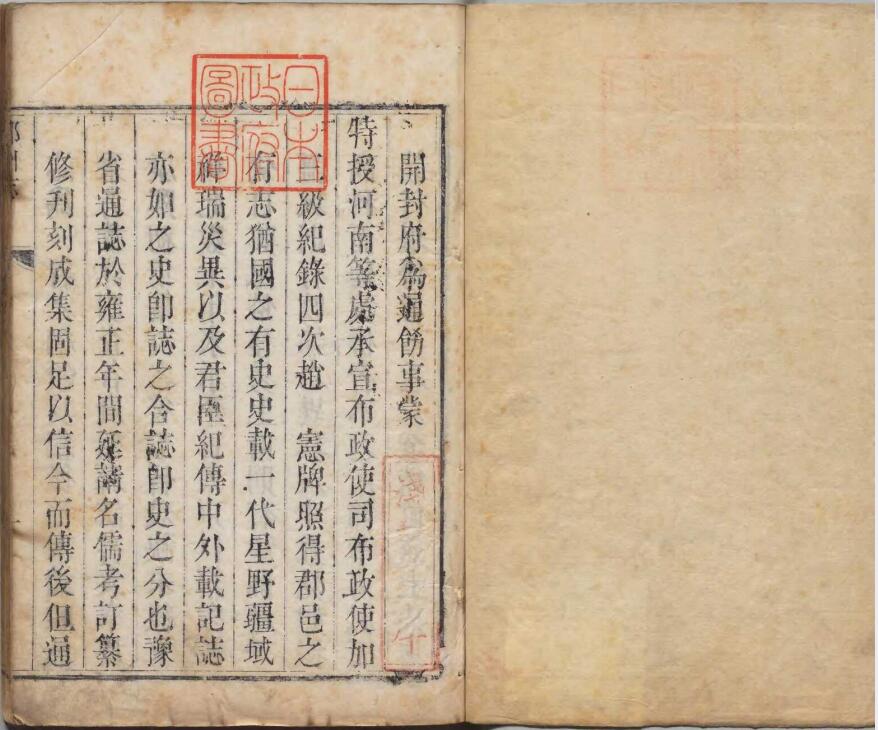 開封府為通飭事蒙
特授河南等處承宣布政使司布政使加
三級紀錄四次趙 憲牌照得郡邑之
有志猶國之有史史載一代星野疆域
祥瑞災異以及君臣紀傳中外載記誌
亦如之史卽誌之合誌卽史之分也豫
省通誌於雍正年間延請名儒考訂纂
修刋刻成集固足以信今而傳後但通
日本
政府
圖書